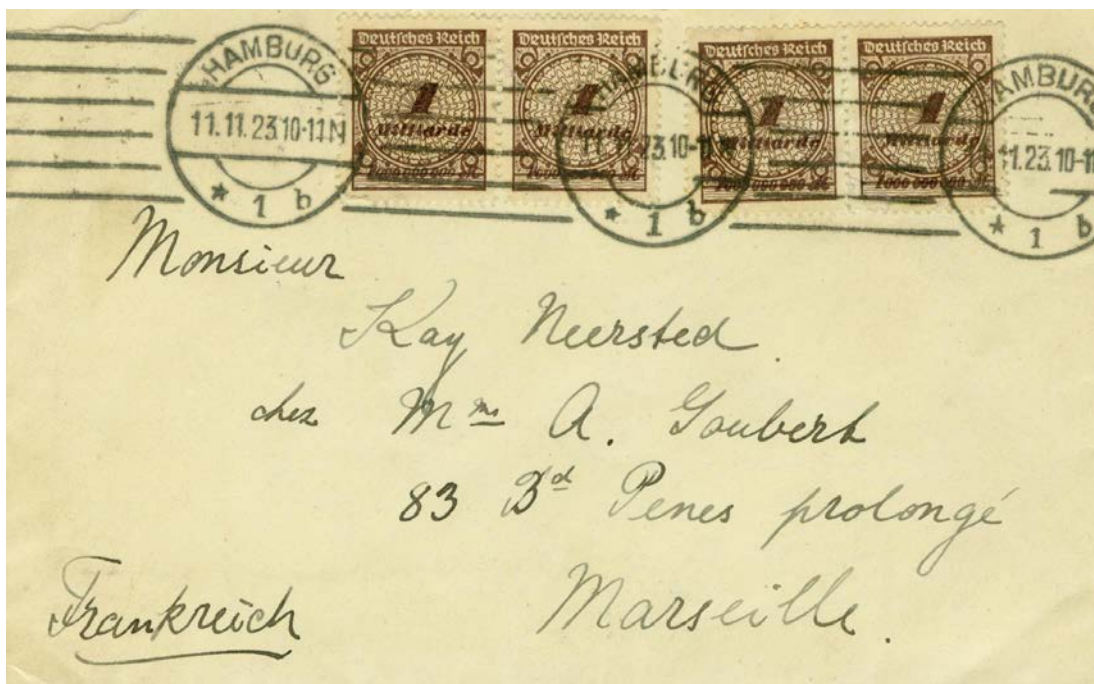 HAMBURG
11.11.23.10-11N
* 1 b
Deutsches Reich
1
Milliarde
1000 000 000 M
Deutsches Reich
1
Milliarde
1000 000 000 M
11.23.10-11
* 1 b
Deutsches Reich
1
Milliarde
1000 000 000 M
Deutsches Reich
1
Milliarde
1000 000 000 M
HAMBURG
11.23.10-11
* 1 b
Monsieur
Kay Neersted
chez Mme A. Goubert
83 Bd Penes prolongé
Marseille.
Frankreich